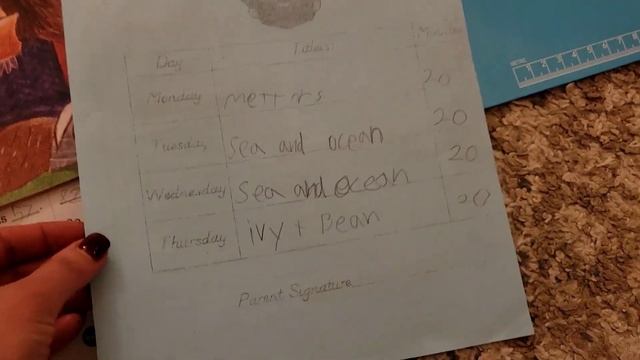 Day Titles Minutes
Monday 20
Tuesday Sea and ocean 20
Wednesday Sea and ocean 20
Thursday ivy + Bean 20
Parent Signature